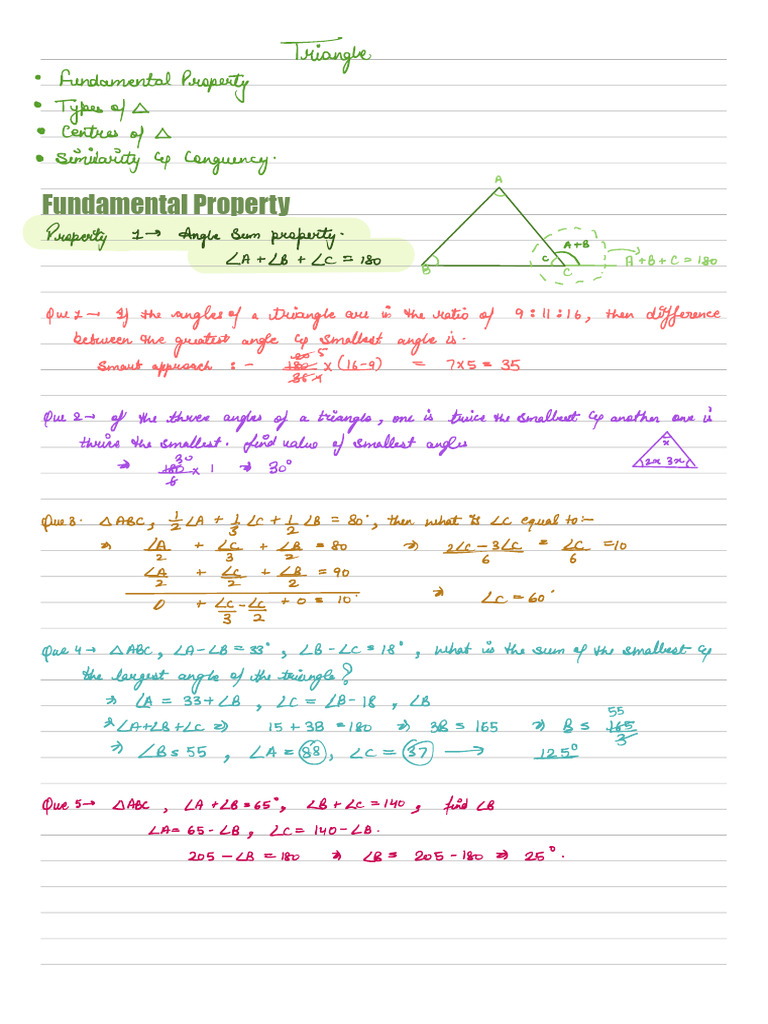 Triangle
• Fundamental Property
• Types of △
• Centres of △
• Similarity & Conguency.
Fundamental Property
Property 1 → Angle Sum property.
∠A + ∠B + ∠C = 180
A
B
C
C
A+B
A+B+C = 180
Que 1 → If the angles of a triangle are in the ratio of 9:11:16, then difference
between the greatest angle & smallest angle is.
Smart approach :- 180/36 × (16-9) = 7×5 = 35
20 5
4
Que 2 → of the three angles of a triangle, one is twice the smallest & another one is
thrice the smallest. find value of smallest angles
⇒ 180/6 × 1 ⇒ 30°
30
x
2x 3x
Que 3. △ABC, 1/2 ∠A + 1/3 ∠C + 1/2 ∠B = 80°, then what is ∠C equal to:-
⇒ ∠A/2 + ∠C/3 + ∠B/2 = 80 ⇒ 2∠C - 3∠C/6 = ∠C/6 = 10
∠A/2 + ∠C/2 + ∠B/2 = 90
0 + ∠C/3 - ∠C/2 + 0 = 10° ⇒ ∠C = 60°
Que 4 → △ABC, ∠A-∠B = 33°, ∠B-∠C = 18°, what is the sum of the smallest &
the largest angle of the triangle?
⇒ ∠A = 33+∠B, ∠C = ∠B-18, ∠B
⇒ ∠A+∠B+∠C ⇒ 15 + 3B = 180 ⇒ 3B = 165 ⇒ B = 165/3
55
⇒ ∠B = 55, ∠A = 88, ∠C = 37 → 125°
Que 5 → △ABC, ∠A+∠B = 65°, ∠B+∠C = 140, find ∠B
∠A = 65-∠B, ∠C = 140-∠B.
205 - ∠B = 180 ⇒ ∠B = 205-180 ⇒ 25°.